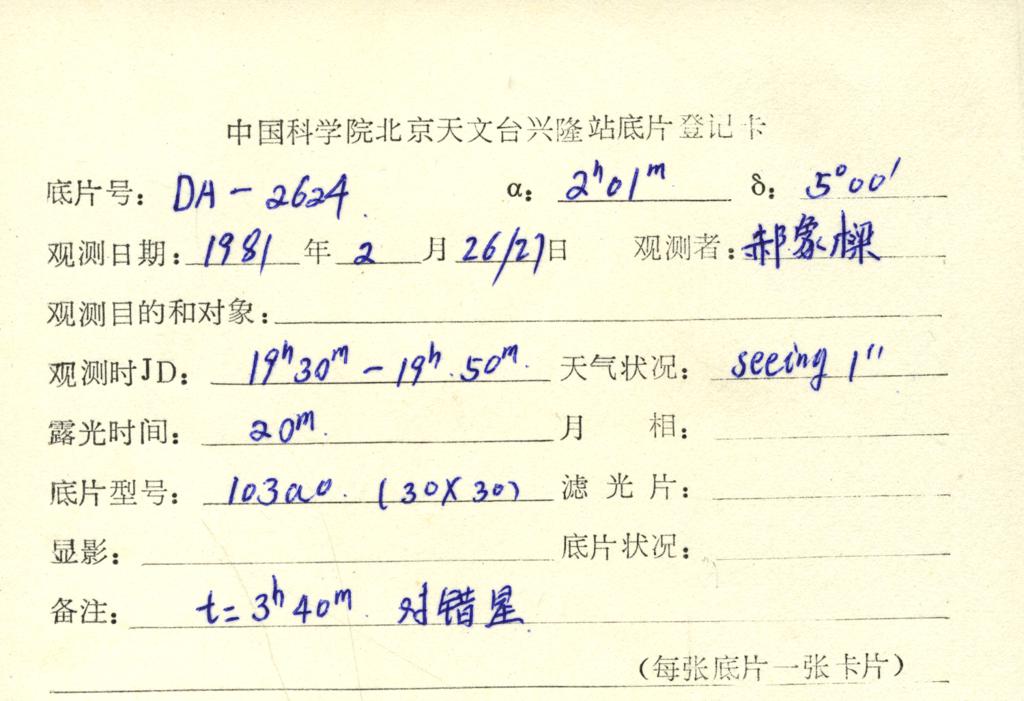 中国科学院北京天文台兴隆站底片登记卡
底片号: DA-2624 α: 2ʰ01ᵐ δ: 5°00′
观测日期: 1981 年 2 月 26/27 日 观测者: 郝象樑
观测目的和对象:
观测时JD: 19ʰ30ᵐ - 19ʰ.50ᵐ. 天气状况: seeing 1″
露光时间: 20ᵐ. 月 相:
底片型号: 103aO. (30X30) 滤光片:
显影: 底片状况:
备注: t=3ʰ40ᵐ. 对错星
(每张底片一张卡片)